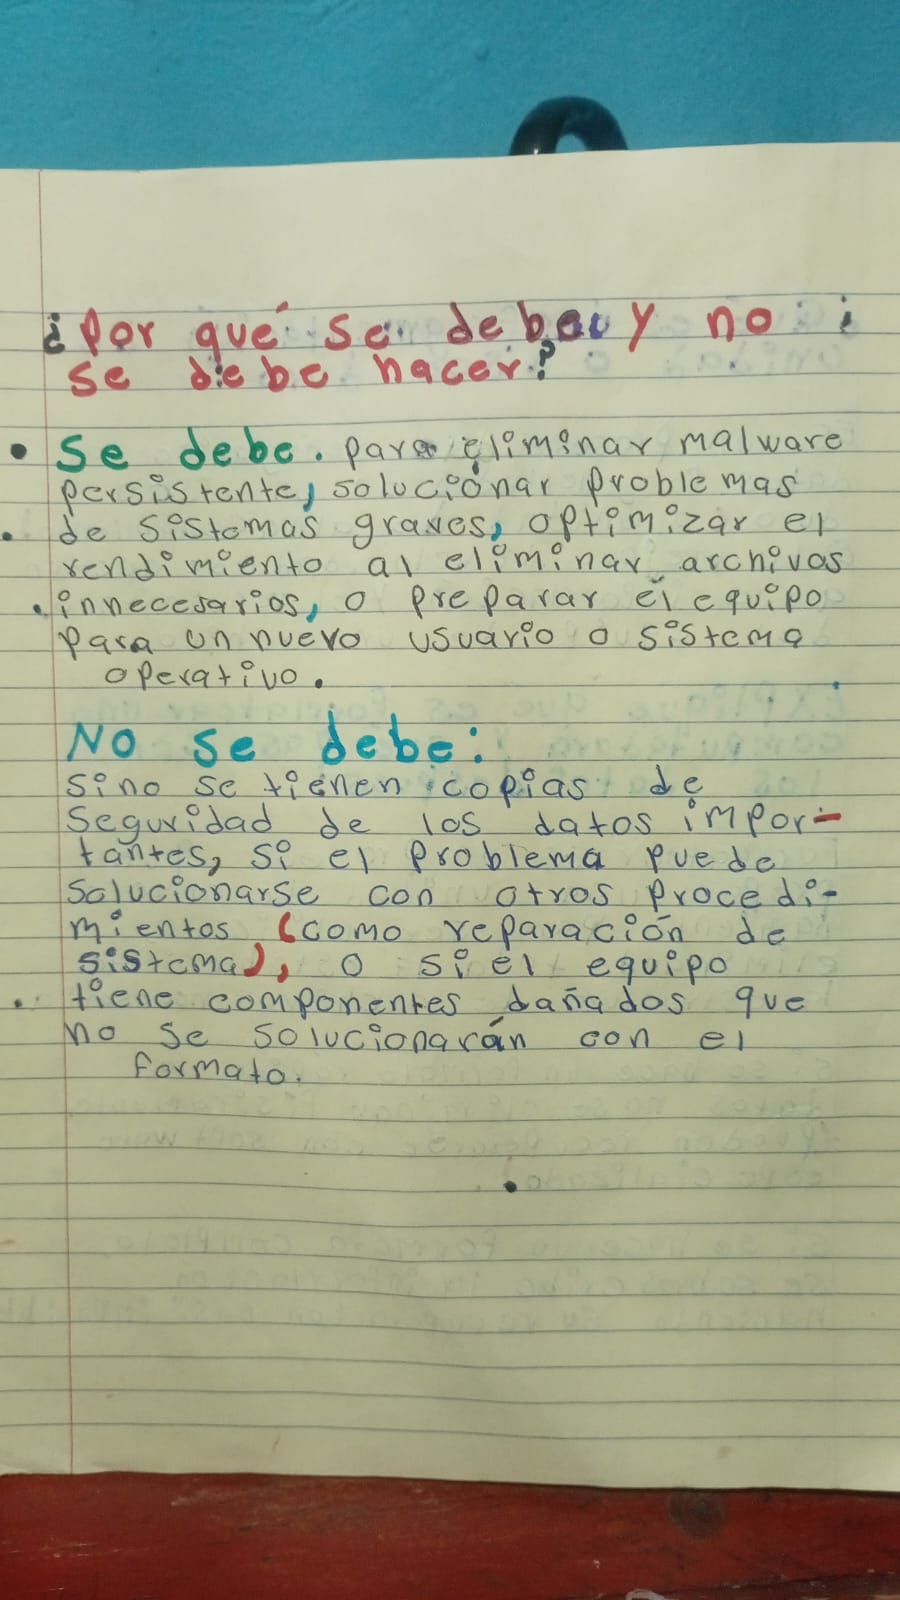 ¿Por qué se debe y no
se debe hacer?
• Se debe. para eliminar malware
persistente, solucionar problemas
de sistemas graves, optimizar el
rendimiento al eliminar archivos
innecesarios, o preparar el equipo
para un nuevo usuario o sistema
operativo.
No se debe:
sino se tienen copias de
seguridad de los datos impor-
tantes, si el problema puede
solucionarse con otros procedi-
mientos (como reparación de
sistema), o si el equipo
tiene componentes dañados que
no se solucionarán con el
formato.